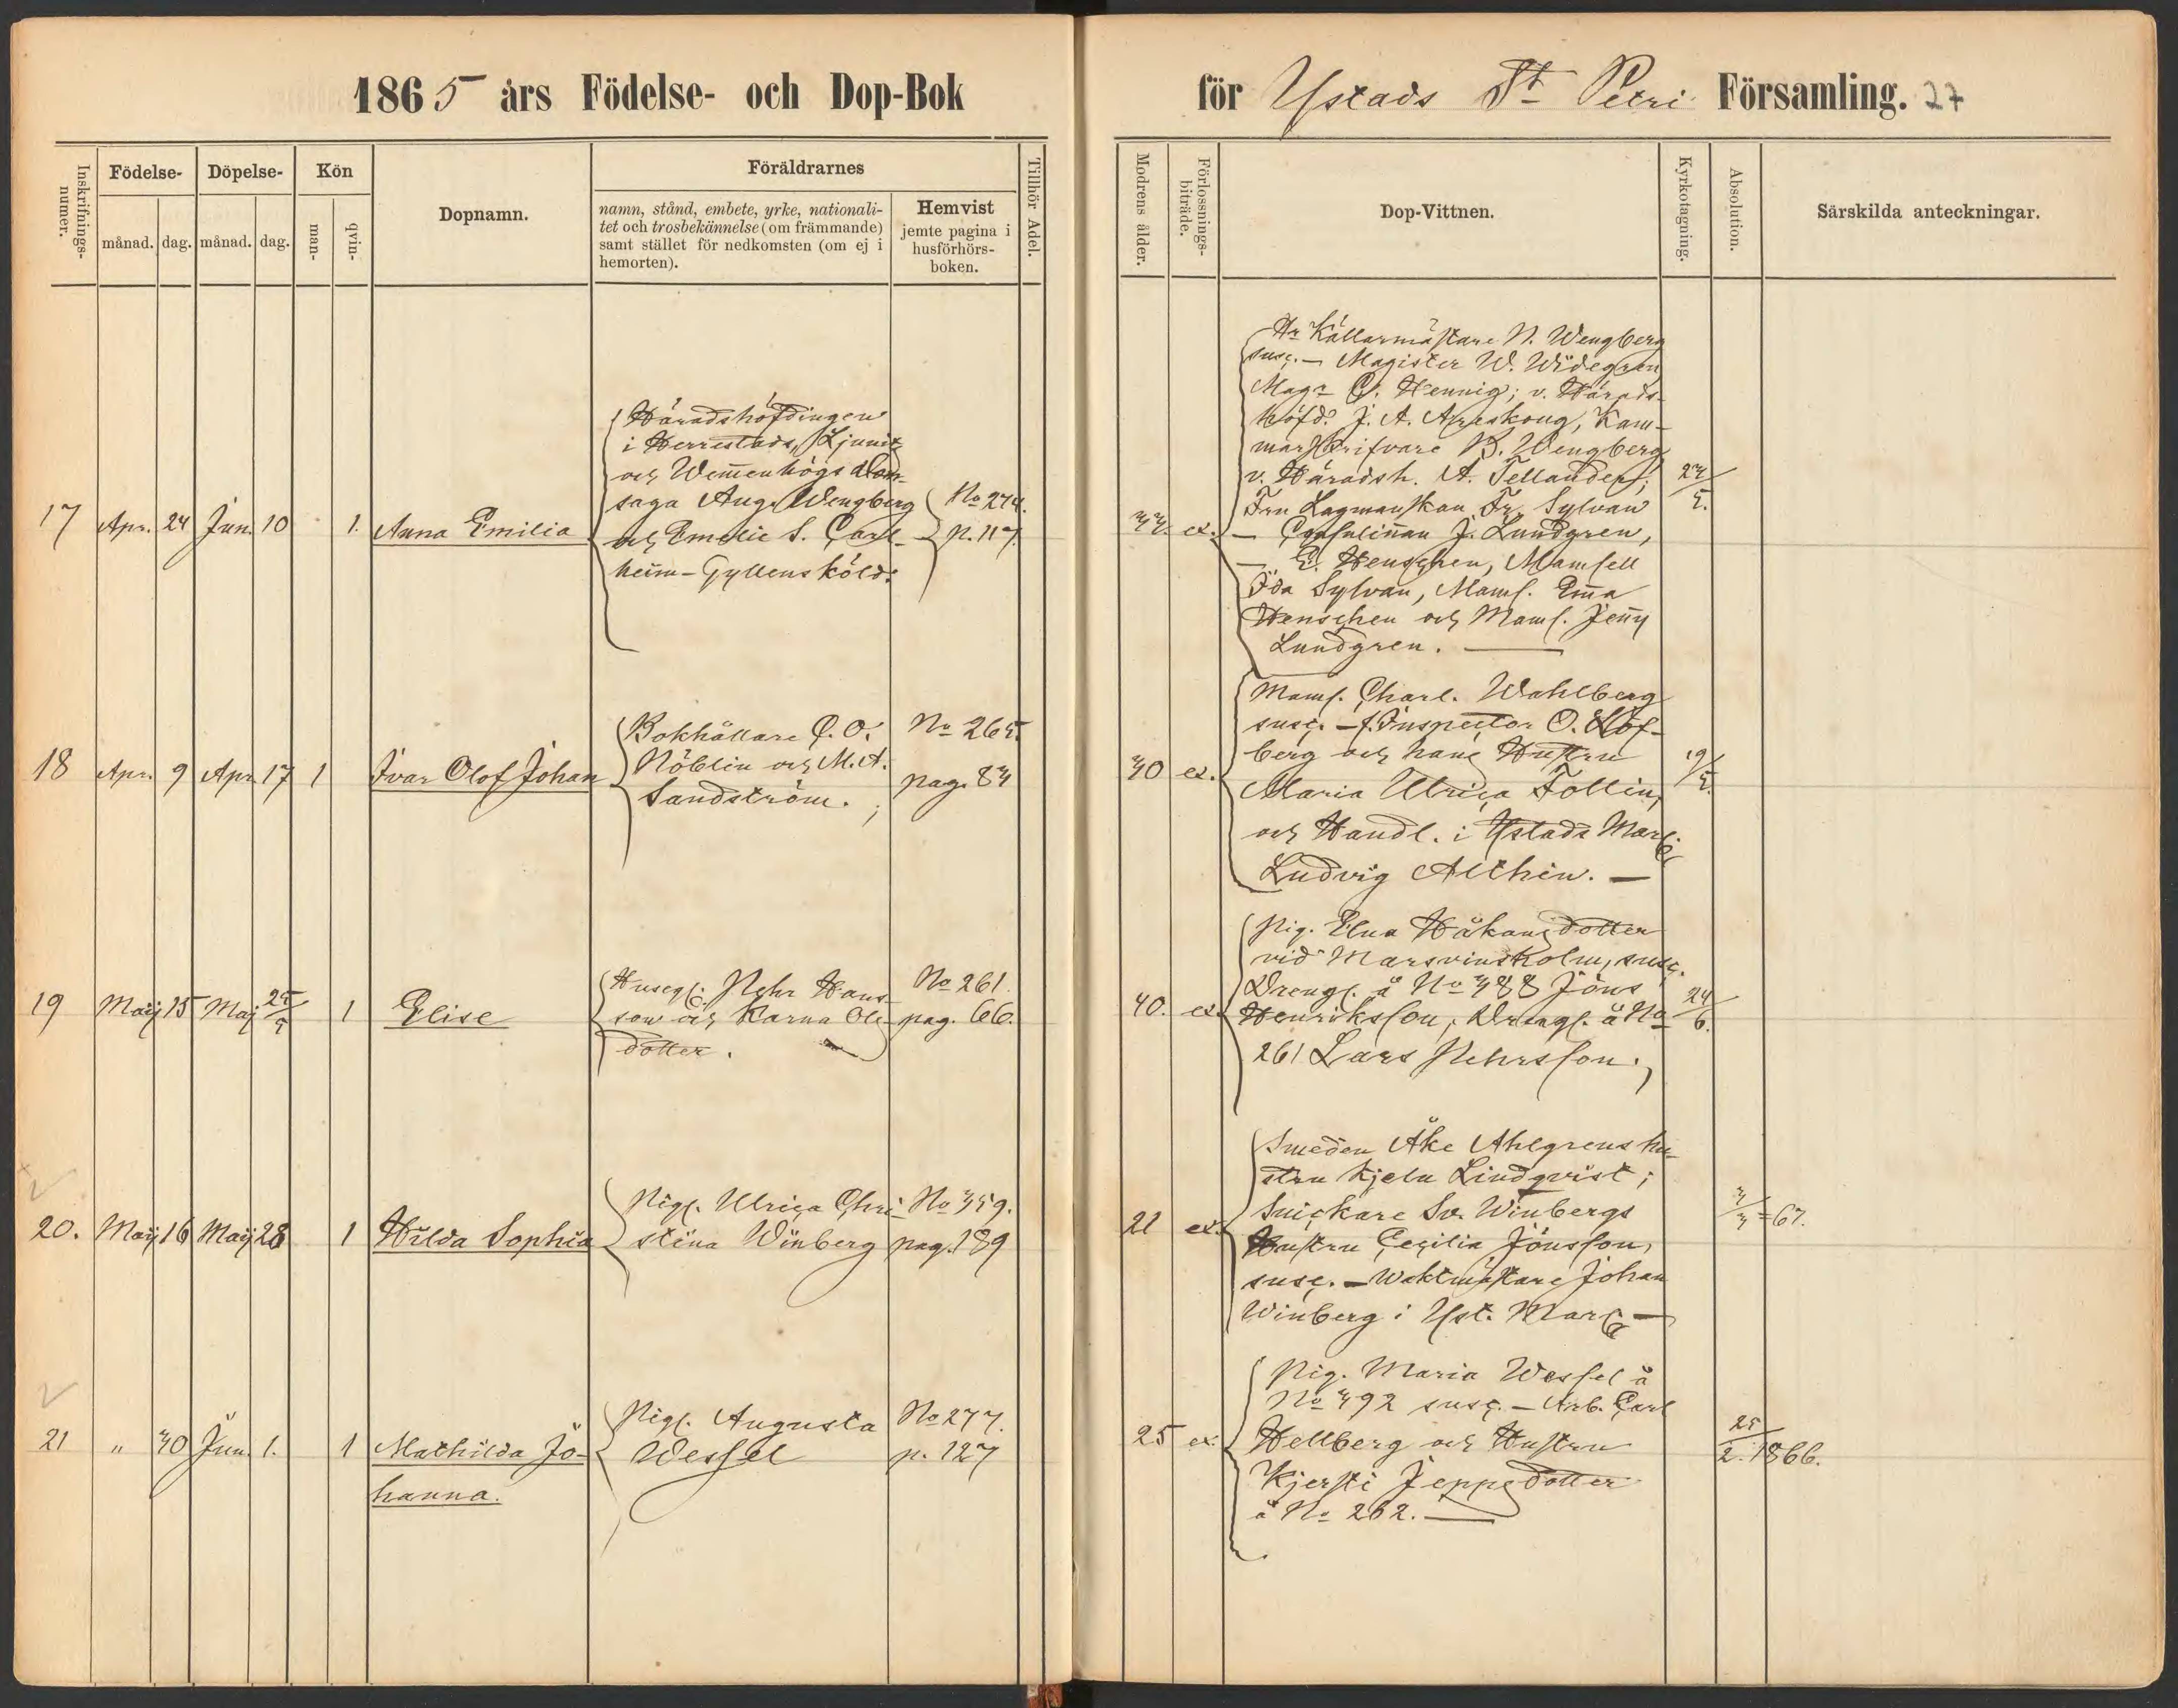 1865 års Födelse- och Dop-Bok
för Ystads St Petri Församling. 27
Inskrifnings-
numer.
Födelse-
månad. dag.
Döpelse-
månad. dag.
Kön
man-
qvin-
Dopnamn.
Föräldrarnes
namn, stånd, embete, yrke, nationali-
tet och trosbekännelse (om främmande)
samt stället för nedkomsten (om ej i
hemorten).
Hemvist
jemte pagina i
husförhörs-
boken.
Tillhör Adel.
Modrens ålder.
Förlossnings-
biträde.
Dop-Vittnen.
Kyrkotagning.
Absolution.
Särskilda anteckningar.
17 Apr. 24 Jun. 10 1. Anna Emilia
Häradshöfdingen
i Herrestads, Ljunits
och Wem̄enhögs dom-
saga Aug. Wengberg
och Emelie S. Carl-
heim-Gyllensköld.
No 274.
p. 117.
33. ex.
Hr Källarmästare N. Wengberg
susc. — Magister W. Widegren
Magr C. Hennig; v. Härads-
höfd. J. A. Areskoug, Kam-
marskrifvare B. Wengberg
v. Häradsh. A. Tellander;
Fru Lagmanskan Fr. Sylvan
— Consulin̄an J. Lundgren,
— E. Henschen, Mamsell
Ida Sylvan, Mams. Em̄a
Henschen och Mams. Jen̄y
Lundgren. —
18 Apr. 9 Apr. 17 1 Ivar Olof Johan
Bokhållare C. O.
Nöblin och M. A.
Sandström.
No 265.
pag. 83
30 ex.
Mams. Charl. Wahlberg
susc. — f. Inspector O. Höf-
berg och hans Hustru
Maria Ulrica Follin,
och Handl. i Ystads Mar.
Ludvig Althin. —
19/5.
19 Maij 15 Maj 25/5 1 Elise
Huseg. Pehr Hans-
son och Karna Ols-
dotter.
No 261.
pag. 66.
40. ex.
Pig. Elna Håkansdotter
vid Marsvinsholm, susc.
Drengs. å No 388 Jöns
Henriksson, Drengs. å No
261 Lars Pehrsson.
24/6.
20. Maij 16 Maij 28 1 Hilda Sophia
Pigs. Ulrica Chri-
stina Winberg
No 359.
pag. 189
21 ex.
Smeden Åke Ahlgrens hu-
stru Kjeln Lindqvist;
Snickare Sv. Winbergs
Hustru Cecilia Jönsson,
susc. — Waktmästare Johan
Winberg i Yst. Mar. —
3/3 = 67.
21 " 30 Jun. 1. 1 Mathilda Jo-
hanna.
Pigs. Augusta
Wessel
No 277.
p. 127
25 ex.
Pig. Maria Wessel å
No 392 susc. — Arb. Carl
Hellberg och Hustru
Kjersti Jeppsdotter
å No 262. —
25/2. 1866.